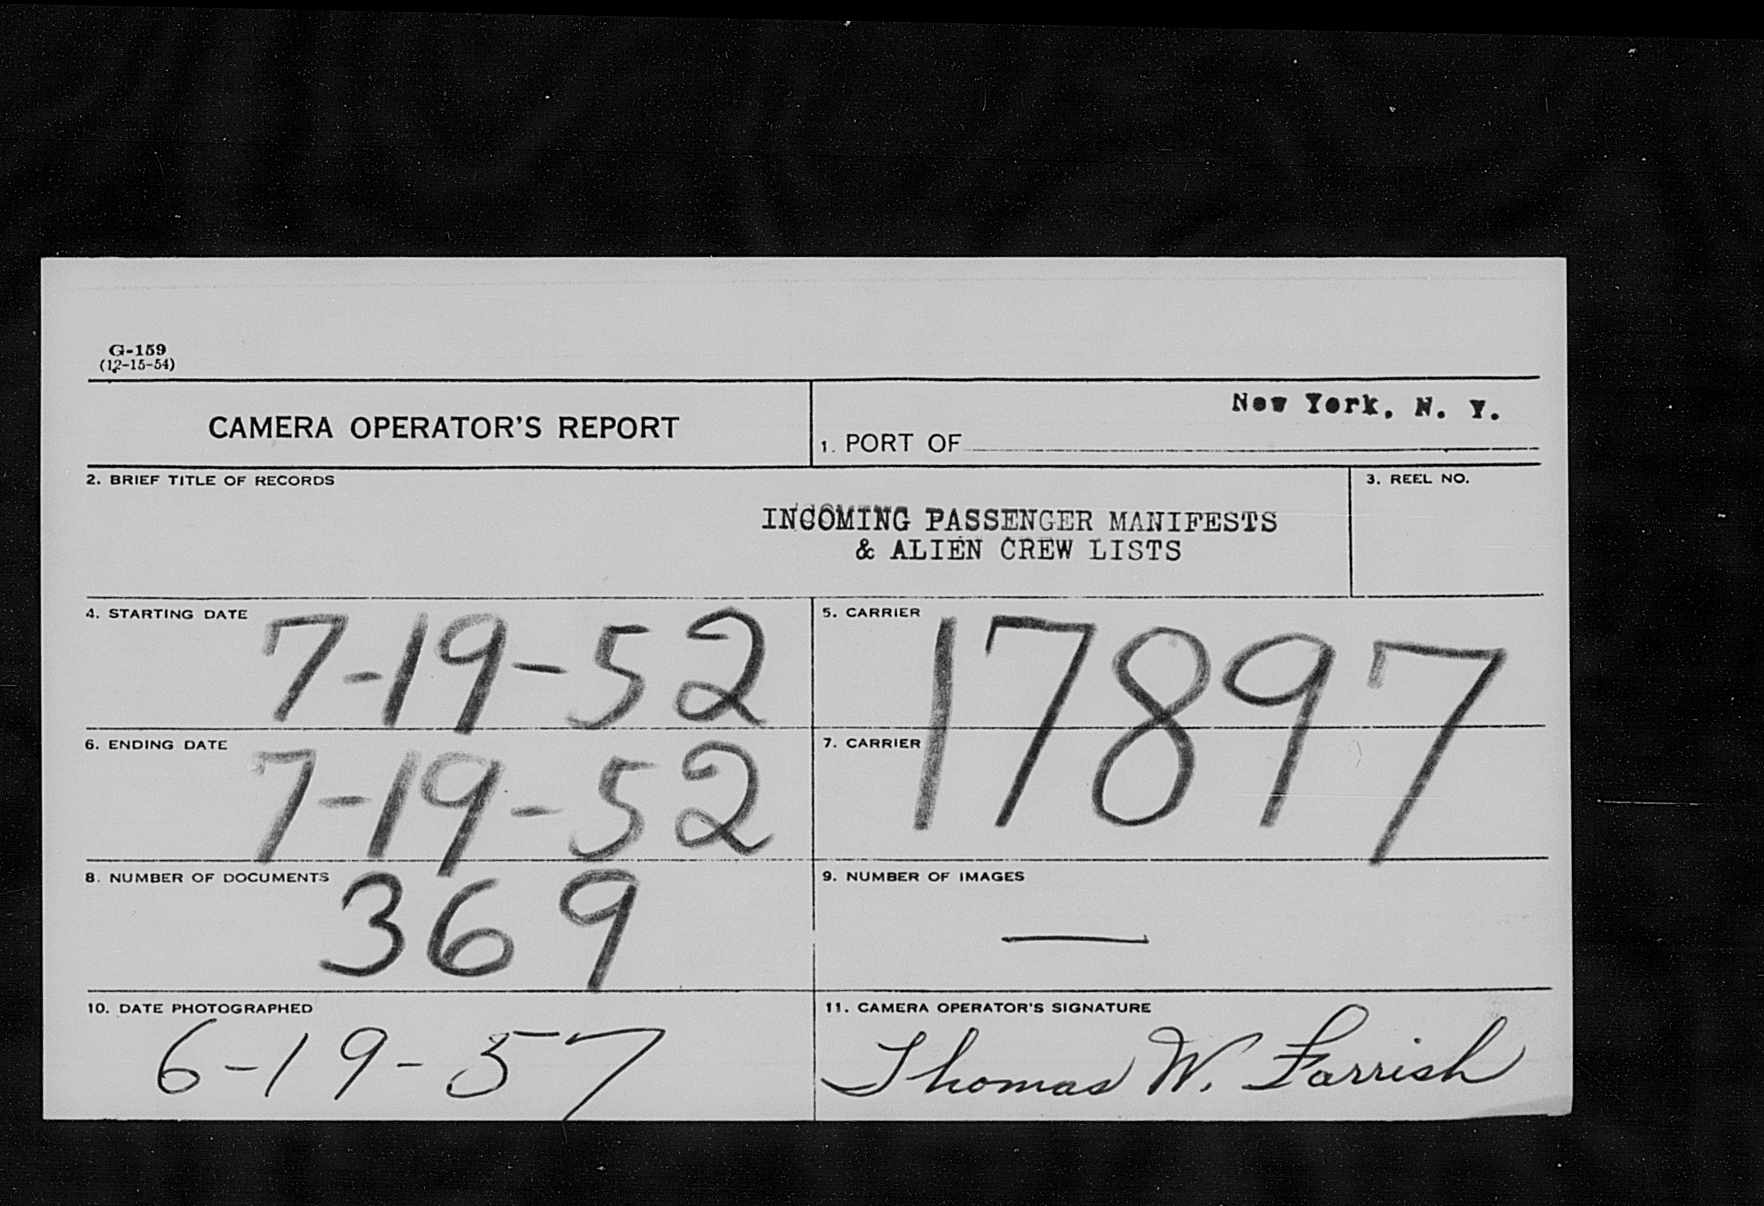 G-159
(12-15-54)
CAMERA OPERATOR'S REPORT
1. PORT OF New York, N. Y.
2. BRIEF TITLE OF RECORDS
INCOMING PASSENGER MANIFESTS
& ALIEN CREW LISTS
3. REEL NO.
4. STARTING DATE 7-19-52
5. CARRIER
17897
6. ENDING DATE 7-19-52
7. CARRIER
8. NUMBER OF DOCUMENTS 369
9. NUMBER OF IMAGES
—
10. DATE PHOTOGRAPHED
6-19-57
11. CAMERA OPERATOR'S SIGNATURE
Thomas W. Farrish